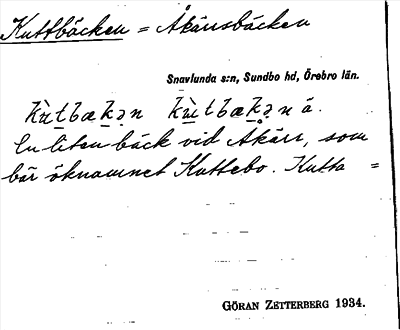 Kuttbäcken = Åkärrsbäcken
Snavlunda s:n, Sundbo hd, Örebro län.
kùtbækən kùtbækəna.
En liten bäck vid Åkärr, som
bär öknamnet Kuttebo. Kutta =
GÖRAN ZETTERBERG 1934.